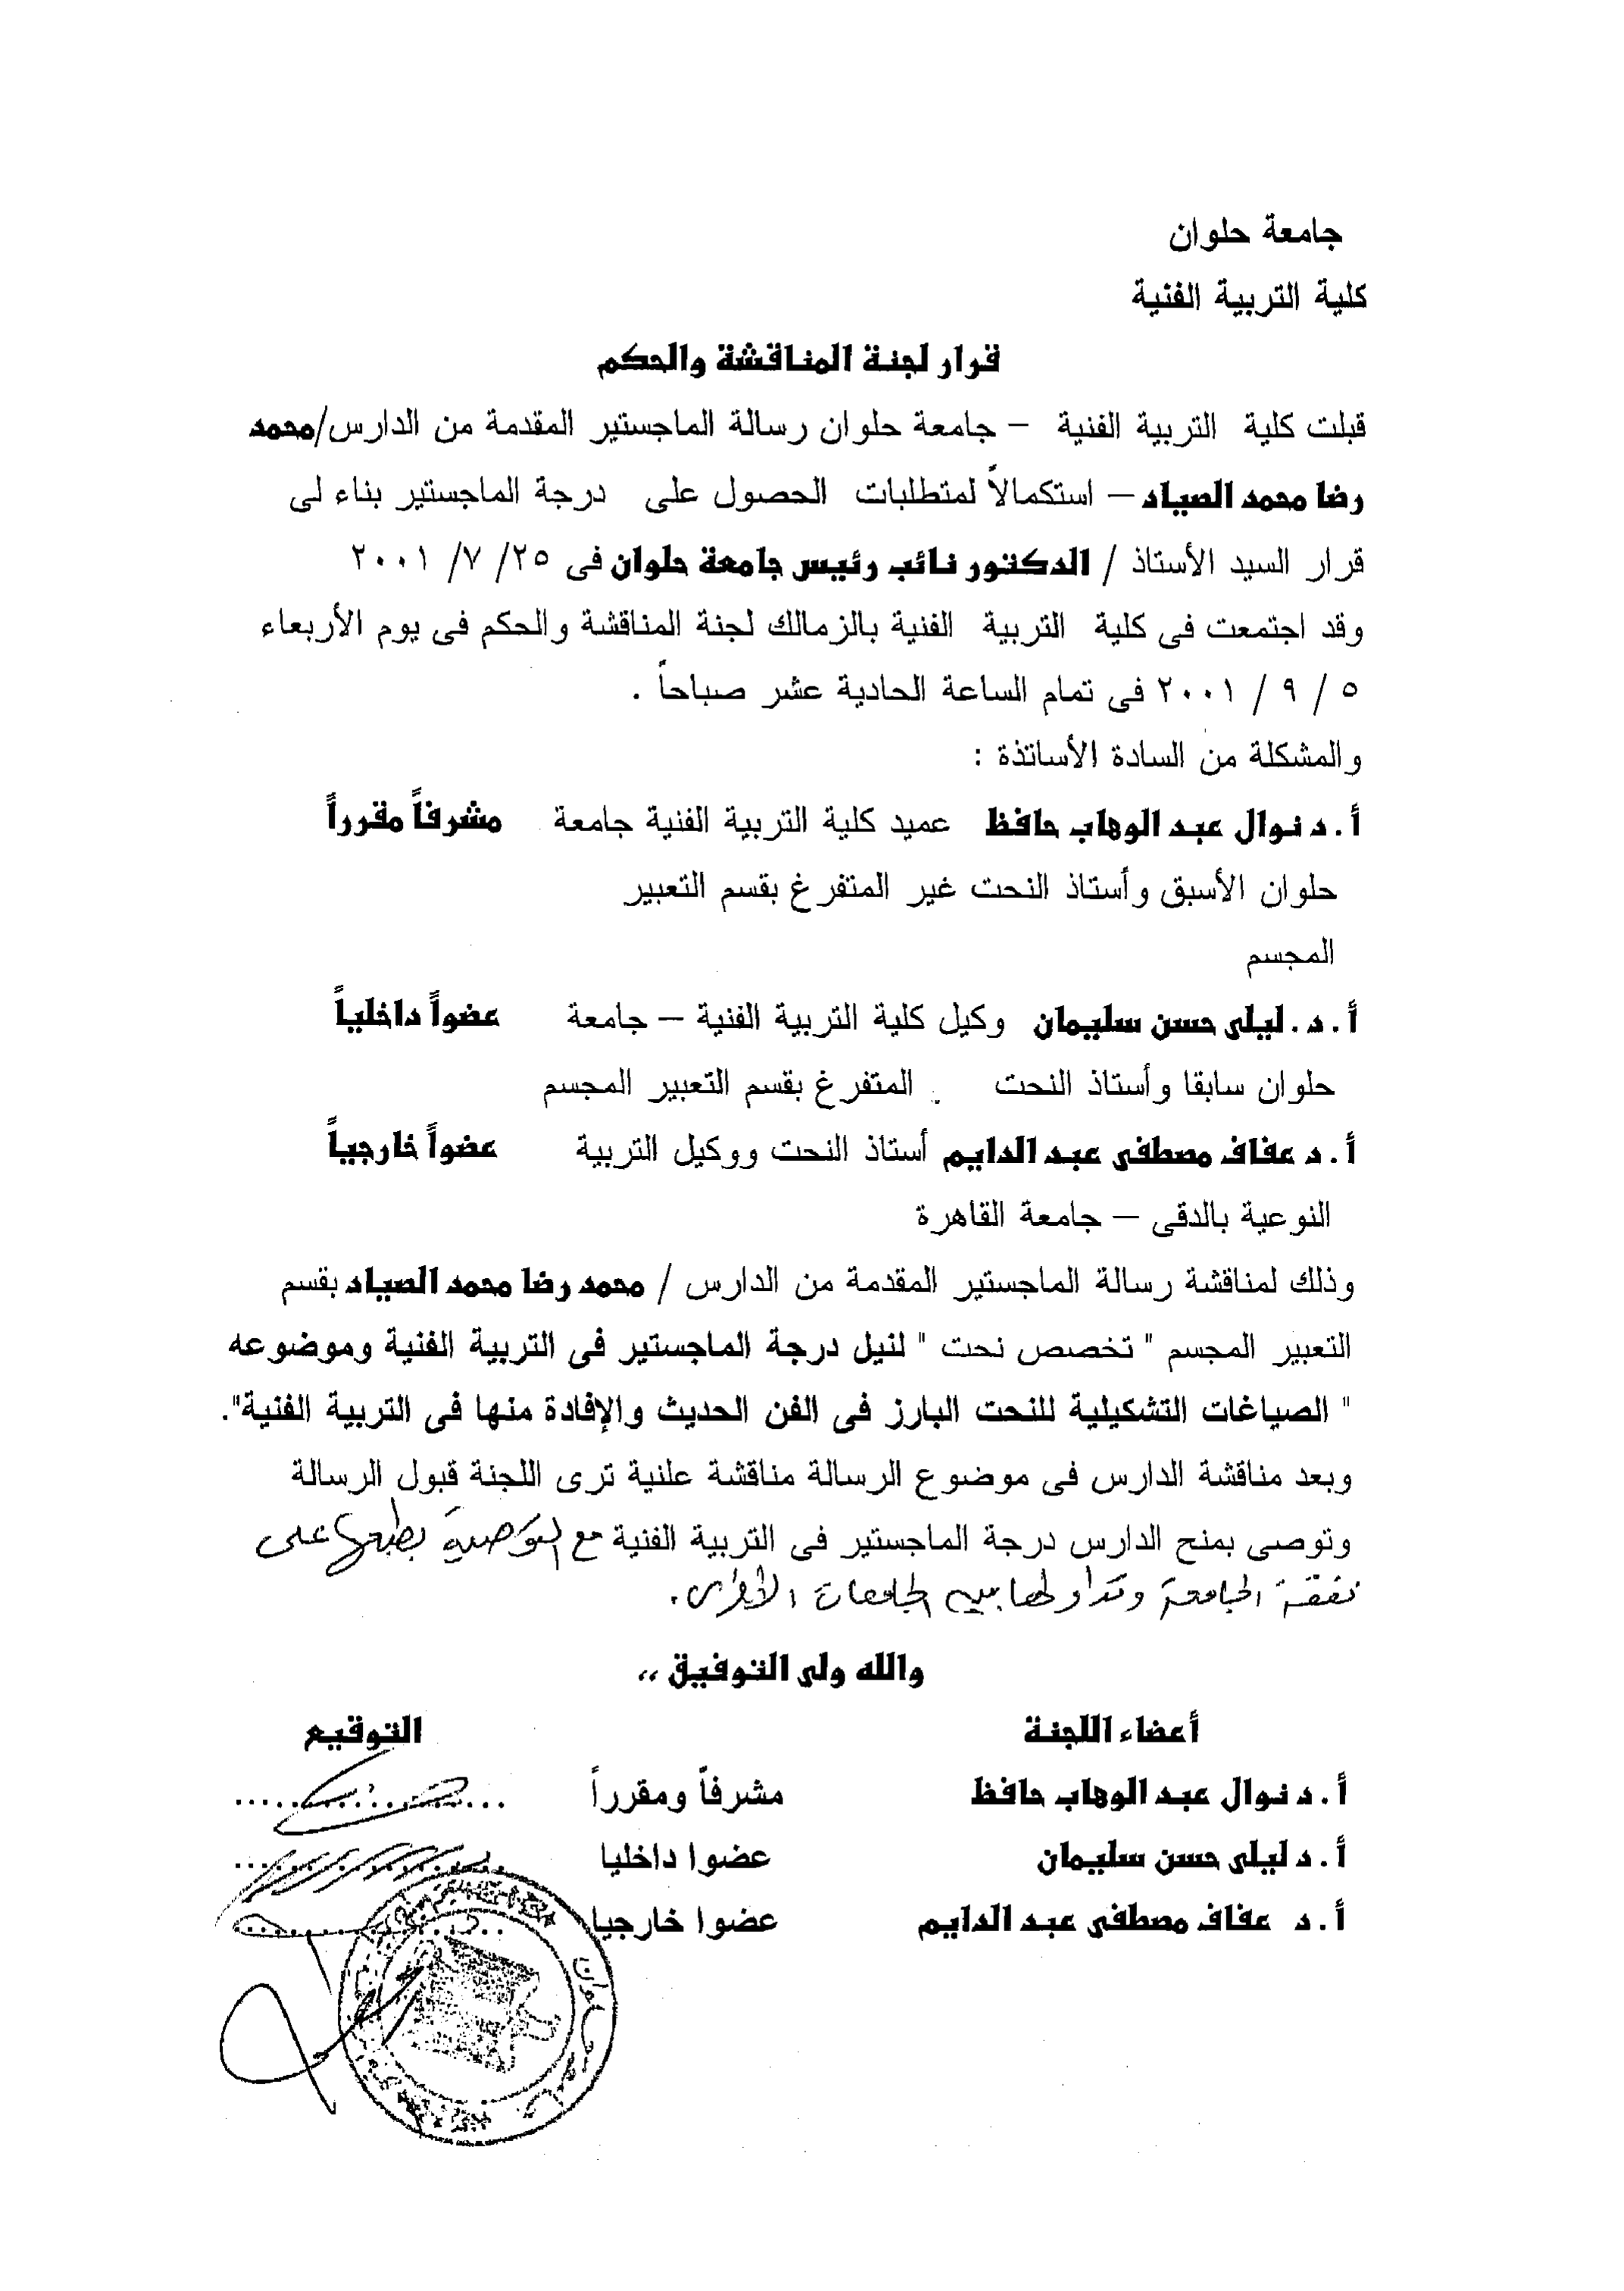 جامعة حلوان
كلية التربية الفنية
قرار لجنة المناقشة والحكم
قبلت كلية التربية الفنية – جامعة حلوان رسالة الماجستير المقدمة من الدارس/محمد
رضا محمد الصياد – استكمالاً لمتطلبات الحصول على درجة الماجستير بناء لى
قرار السيد الأستاذ / الدكتور نائب رئيس جامعة حلوان فى ٢٥/ ٧/ ٢٠٠١
وقد اجتمعت فى كلية التربية الفنية بالزمالك لجنة المناقشة والحكم فى يوم الأربعاء
٥ / ٩ / ٢٠٠١ فى تمام الساعة الحادية عشر صباحاً .
والمشكلة من السادة الأساتذة :
أ.د نوال عبد الوهاب حافظ عميد كلية التربية الفنية جامعة مشرفاً مقرراً
حلوان الأسبق وأستاذ النحت غير المتفرغ بقسم التعبير
المجسم
أ.د. ليلى حسن سليمان وكيل كلية التربية الفنية – جامعة عضواً داخلياً
حلوان سابقا وأستاذ النحت المتفرغ بقسم التعبير المجسم
أ.د عفاف مصطفى عبد الدايم أستاذ النحت ووكيل التربية عضواً خارجياً
النوعية بالدقى – جامعة القاهرة
وذلك لمناقشة رسالة الماجستير المقدمة من الدارس / محمد رضا محمد الصياد بقسم
التعبير المجسم " تخصص نحت " لنيل درجة الماجستير فى التربية الفنية وموضوعه
" الصياغات التشكيلية للنحت البارز فى الفن الحديث والإفادة منها فى التربية الفنية".
وبعد مناقشة الدارس فى موضوع الرسالة مناقشة علنية ترى اللجنة قبول الرسالة
وتوصى بمنح الدارس درجة الماجستير فى التربية الفنية مع التوصية بطبعها على
نفقة الجامعة وتداولها بين الجامعات الأخرى.
والله ولى التوفيق ،،
أعضاء اللجنة التوقيع
أ.د نوال عبد الوهاب حافظ مشرفاً ومقرراً ....................
أ.د ليلى حسن سليمان عضوا داخليا ....................
أ.د عفاف مصطفى عبد الدايم عضوا خارجيا ....................